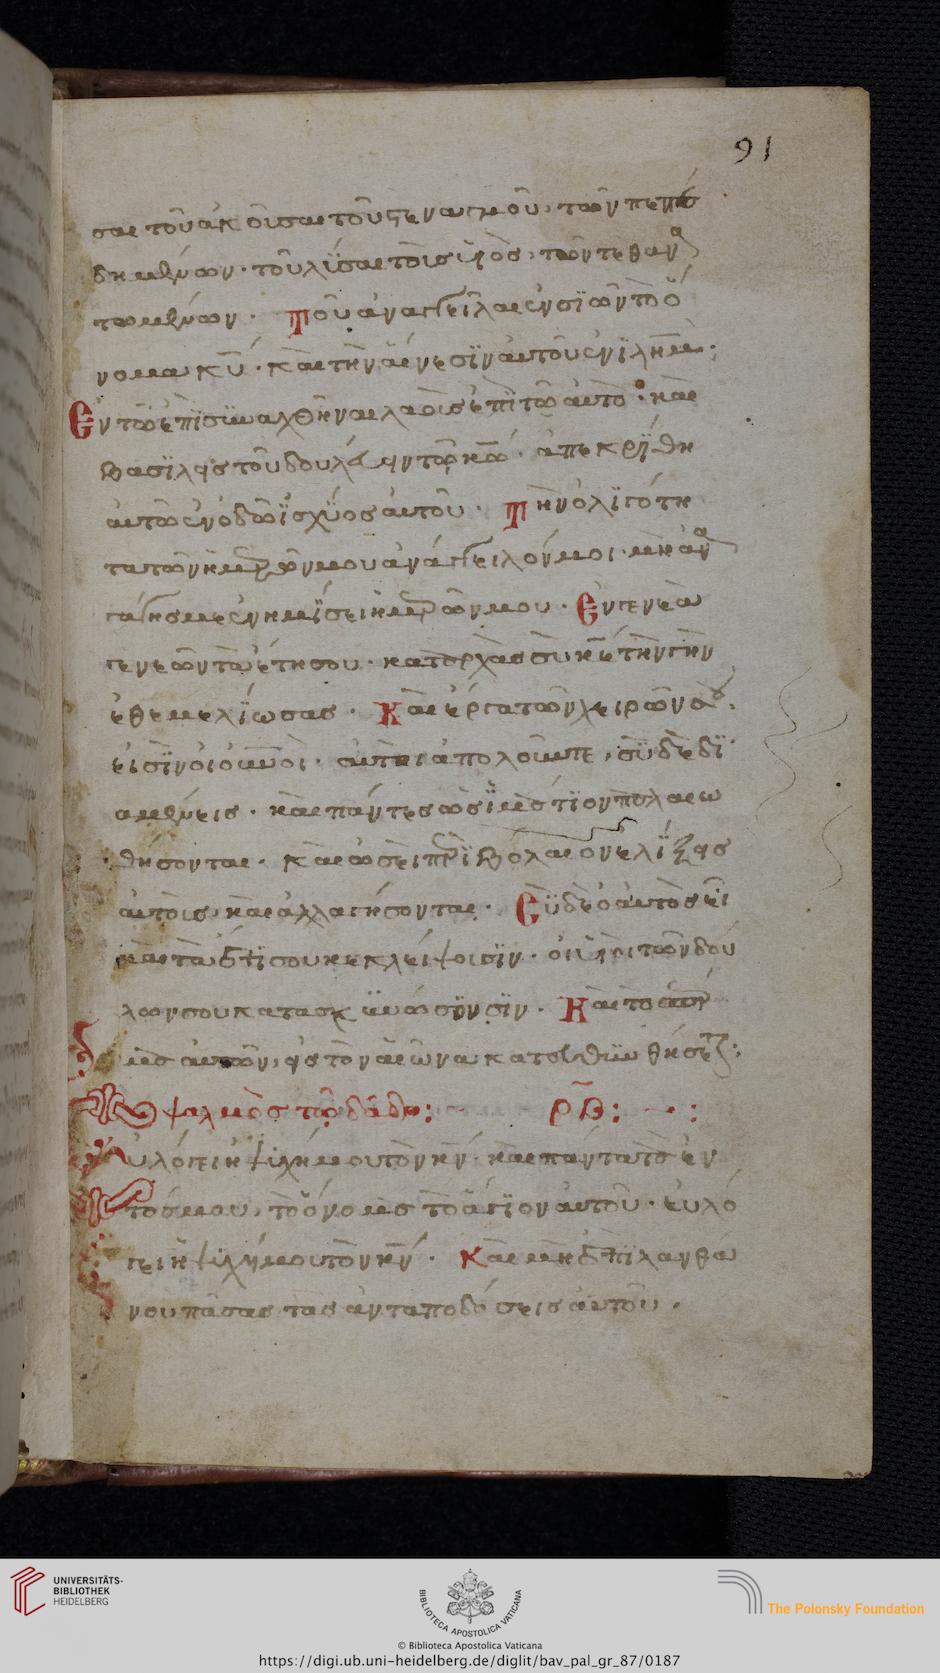 91
σαι τοῦ ἀκοῦσαι τοῦ στεναγμοῦ, τῶν πεπε
δημένων· τοῦ λῦσαι τοῖς ϋἱὸς, τῶν τεθανα
τωμένων· Τοῦ ἀναγγεῖλαι ἐν σϊὼν τὸ ὄ
νομα κυ· καὶ τὴν αἴνεσϊν αὐτοῦ ἐν ϊλημ·
Ἐν τῶ ἐπϊσϋναχθῆναι λαοὺς ἐπῒ τῶ αὐτὸ· καὶ
βασϊλεῖς τοῦ δουλεύειν τῶ κω· ἀπεκρΐθη
αὐτῶ ἐν ὁδῶ ϊσχύος αὐτοῦ· Τὴν ὀλϊγότη
τα τῶν ἡμερῶν μου ἀνάγγειλόν μοι· μὴ ἀνα
γάγης με ἐν ἡμΐσει ἡμερῶν μου· Ἐν γενεᾶ
γενεῶν τὰ ἔτη σου· κατ' ἀρχὰς σὺ κε τὴν γῆν
ἐθεμελΐωσας· Καὶ ἔργα τῶν χειρῶν σου
εἰσὶν οἱ οὐνοὶ· αὐτοὶ ἀπολοῦνται, σὺ δὲ δϊ
αμένεις· καὶ πάντες ὡς ϊμάτϊον παλαιω
θήσονται· καὶ ὡσεὶ περϊβόλαιον ἑλΐξεις
αὐτοὺς, καὶ ἀλλαγήσονται· Σὺ δὲ ὁ αὐτὸς εἶ
καὶ τὰ ἔτη σου οὐκ ἐκλείψουσϊν· οἱ ϋἱοὶ τῶν δού
λων σου κατασκηνώσουσϊν· Καὶ τὸ σπέρ
μα αὐτῶν, εἰς τὸν αἰῶνα κατευθϋνθήσεται:
ψαλμὸς τῶ δαδ: ρβ:
Εὐλόγει ἡ ψϋχή μου τὸν κν· καὶ πάντα τὰ ἐν
τός μου, τὸ ὄνομα τὸ ἅγϊον αὐτοῦ· εὐλό
γει ἡ ψϋχή μου τὸν κν· Καὶ μὴ ἐπϊλανθά
νου πάσας τὰς ἀνταποδόσεις αὐτοῦ·
UNIVERSITÄTS-
BIBLIOTHEK
HEIDELBERG
BIBLIOTECA APOSTOLICA VATICANA
The Polonsky Foundation
© Biblioteca Apostolica Vaticana
https://digi.ub.uni-heidelberg.de/diglit/bav_pal_gr_87/0187